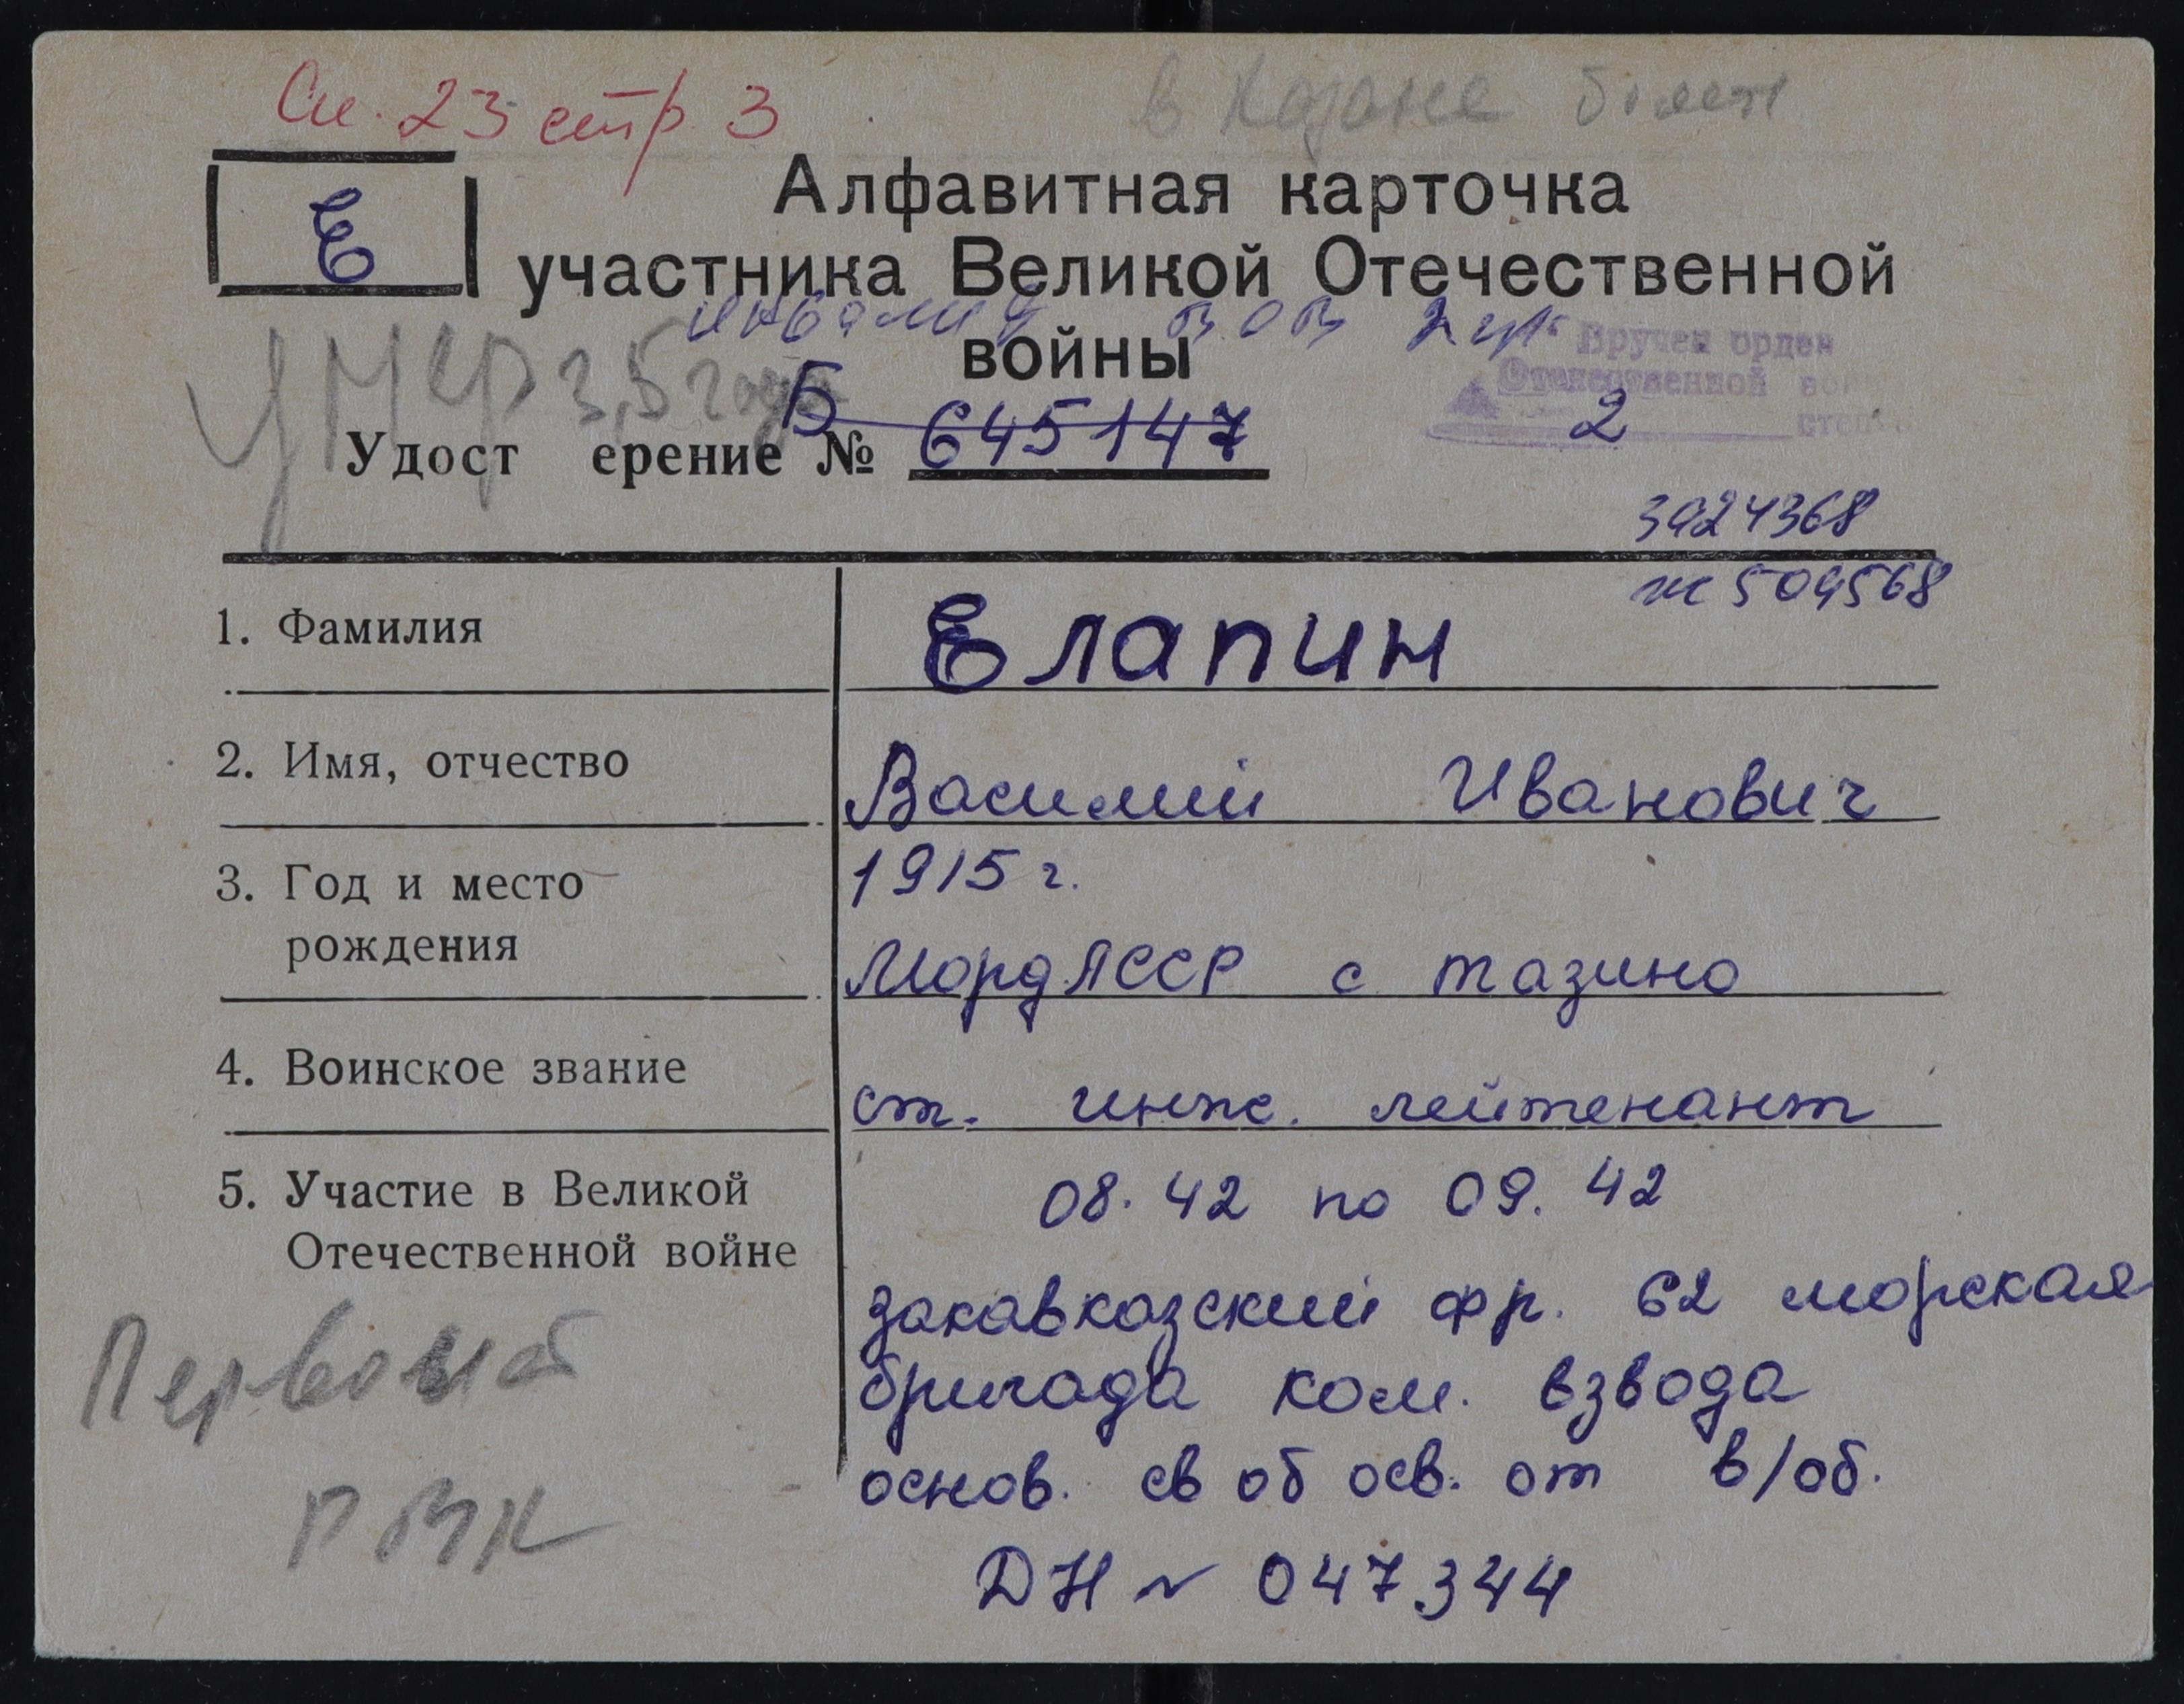 Сп. 23 стр. 3
в Казане билет
Е
Алфавитная карточка
участника Великой Отечественной
инвалид ВОВ 2 гр
войны
Вручен орден
Отечественной вой
2 степ
умер 3,5 года
Удост ерение № Б 645147
3424368
1. Фамилия
Елапин
2. Имя, отчество
Василий Иванович
3. Год и место
рождения
1915 г.
МордАССР с тазино
4. Воинское звание
ст. инж. лейтенант
5. Участие в Великой
Отечественной войне
08. 42 по 09. 42
закавказский фр. 62 морская
бригада ком. взвода
основ. св об осв. от в/об.
ДН № 047344
РВК